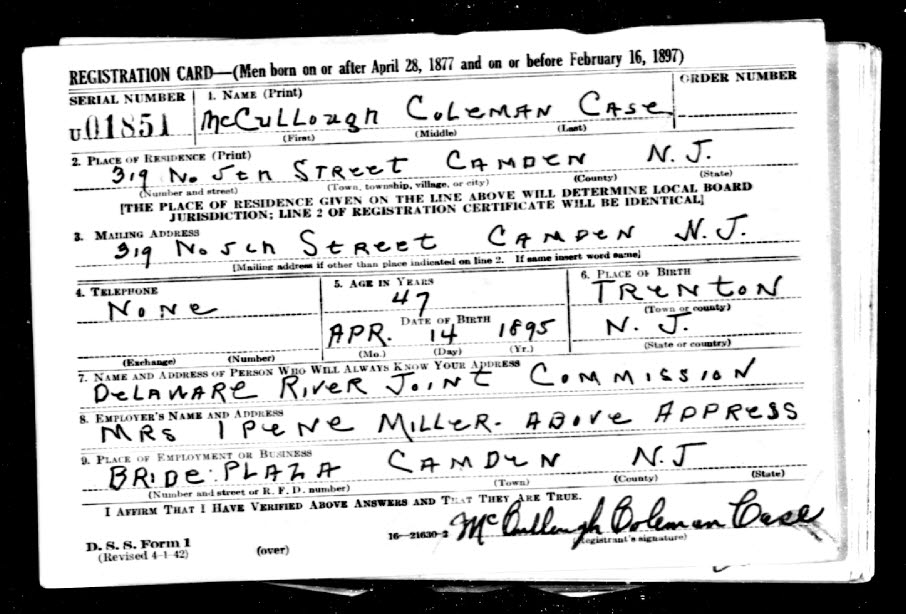 REGISTRATION CARD—(Men born on or after April 28, 1877 and on or before February 16, 1897)
SERIAL NUMBER 1. NAME (Print) ORDER NUMBER
U01851 McCullough Coleman Case
(First) (Middle) (Last)
2. PLACE OF RESIDENCE (Print)
319 No 5th Street Camden N. J.
(Number and street) (Town, township, village, or city) (County) (State)
[THE PLACE OF RESIDENCE GIVEN ON THE LINE ABOVE WILL DETERMINE LOCAL BOARD
JURISDICTION; LINE 2 OF REGISTRATION CERTIFICATE WILL BE IDENTICAL]
3. MAILING ADDRESS
319 No 5th Street Camden N. J.
[Mailing address if other than place indicated on line 2. If same insert word same]
4. TELEPHONE 5. AGE IN YEARS 6. PLACE OF BIRTH
None 47 Trenton
DATE OF BIRTH (Town or county)
APR. 14 1895 N. J.
(Exchange) (Number) (Mo.) (Day) (Yr.) (State or country)
7. NAME AND ADDRESS OF PERSON WHO WILL ALWAYS KNOW YOUR ADDRESS
Delaware River Joint Commission
8. EMPLOYER'S NAME AND ADDRESS
Mrs Irene Miller. Above Address
9. PLACE OF EMPLOYMENT OR BUSINESS
Bride. Plaza Camden N. J
(Number and street or R. F. D. number) (Town) (County) (State)
I AFFIRM THAT I HAVE VERIFIED ABOVE ANSWERS AND THAT THEY ARE TRUE.
D. S. S. Form 1 16—21630-2 McCullough Coleman Case
(Revised 4-1-42) (over) (Registrant's signature)